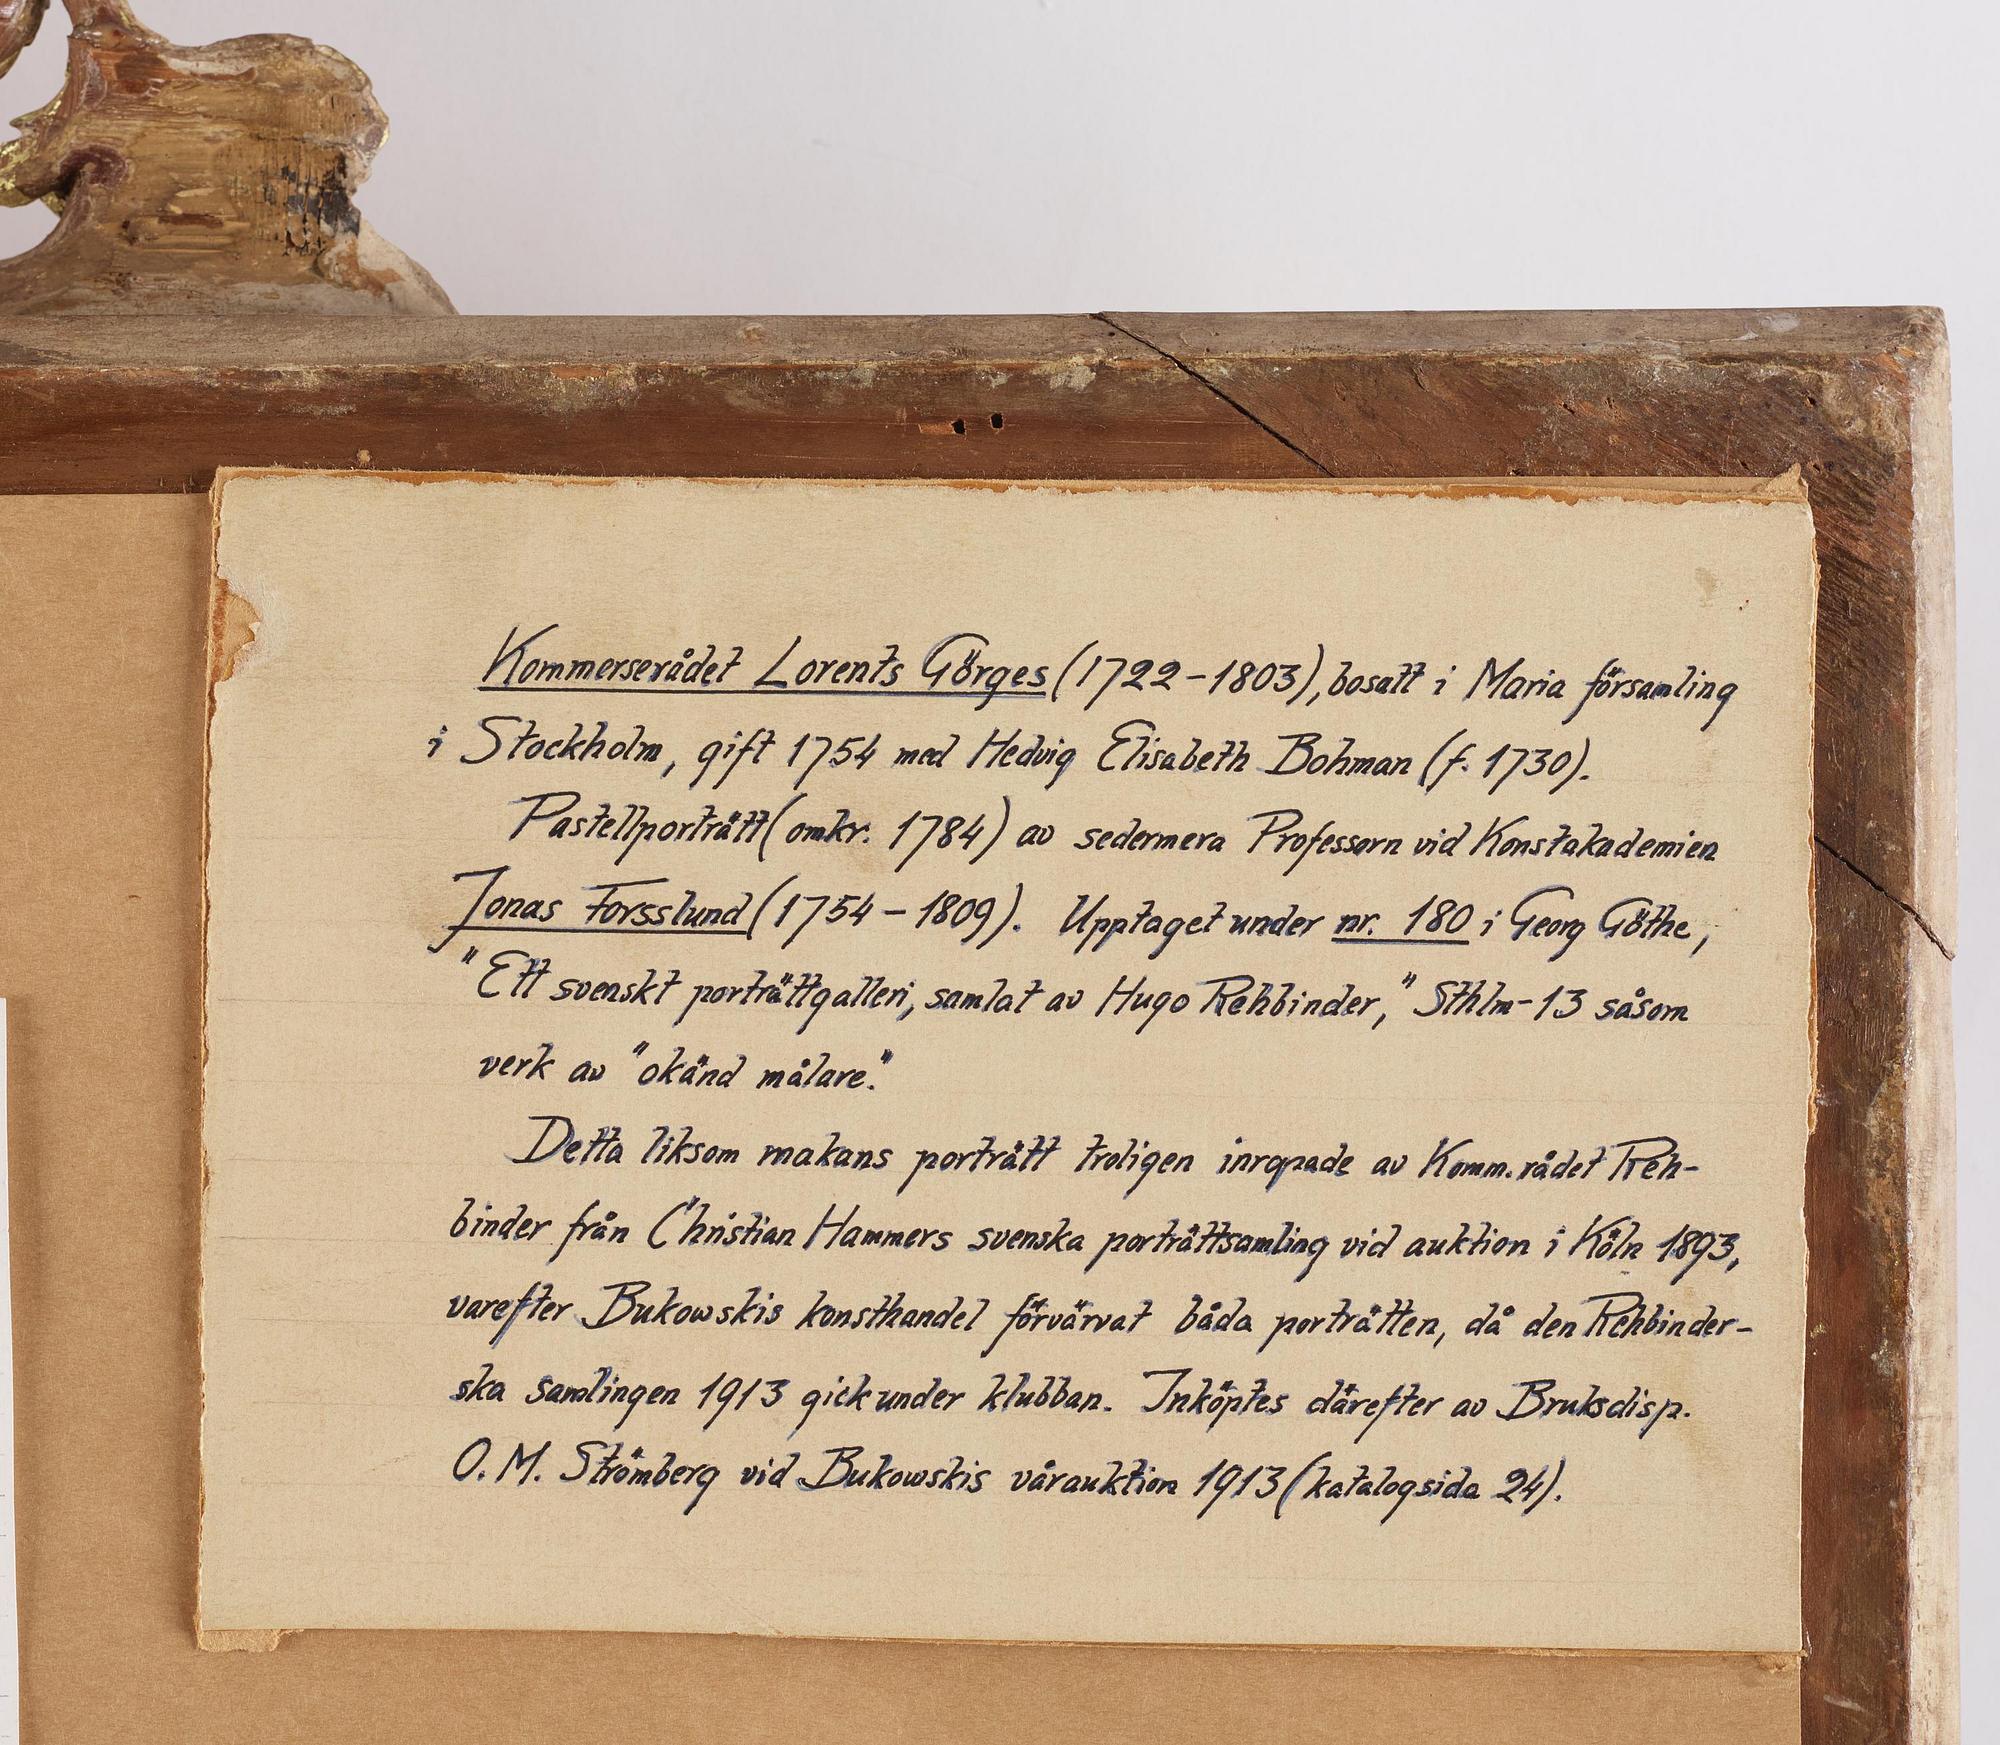 Kommerserådet Lorents Görges (1722-1803), bosatt i Maria församling
i Stockholm, gift 1754 med Hedvig Elisabeth Bohman (f. 1730).
Pastellporträtt (omkr. 1784) av sedermera Professorn vid Konstakademien
Jonas Forsslund (1754-1809). Upptaget under nr. 180 i Georg Göthe,
"Ett svenskt porträttgalleri, samlat av Hugo Rehbinder," Sthlm-13 såsom
verk av "okänd målare."
Detta liksom makans porträtt troligen inropade av Komm.rådet Reh-
binder från Christian Hammers svenska porträttsamling vid auktion i Köln 1893,
varefter Bukowskis konsthandel förvärvat båda porträtten, då den Rehbinder-
ska samlingen 1913 gick under klubban. Inköptes därefter av Bruksdisp.
O. M. Strömberg vid Bukowskis vårauktion 1913 (katalogsida 24).